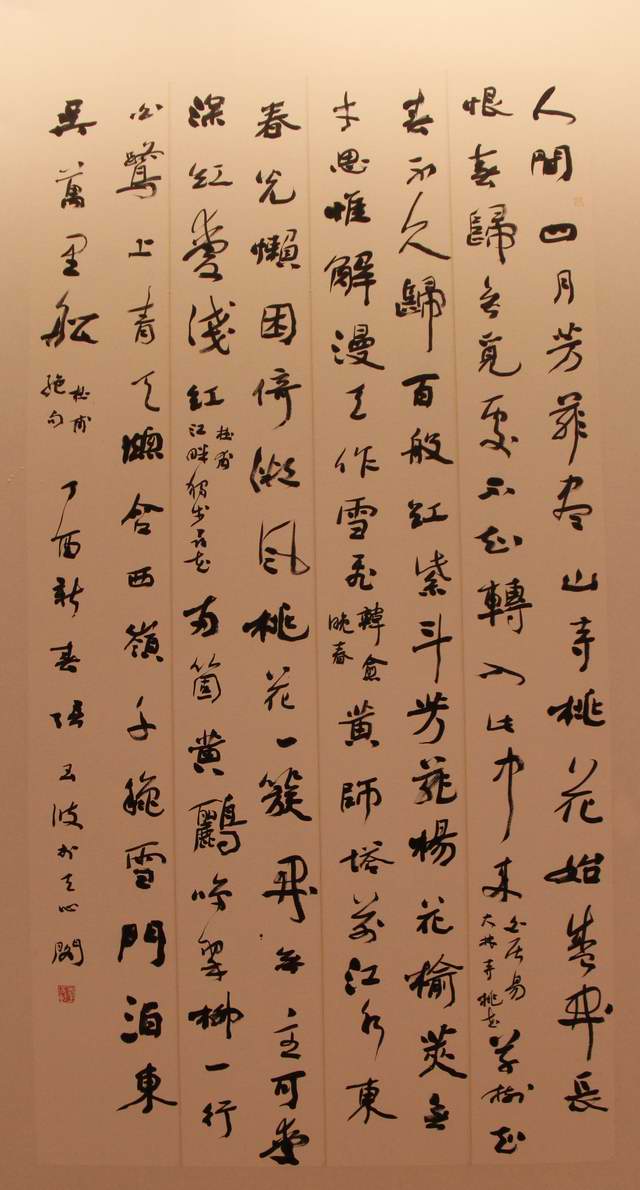 人間四月芳菲尽山寺桃花始盛開長
恨春歸無覓處不知轉入此中來
白居易
大林寺桃花
草樹知
春不久歸百般紅紫斗芳菲楊花榆莢無
才思惟解漫天作雪飛
韓愈
晚春
黃師塔前江水東
春光懶困倚微風桃花一簇開無主可愛
深紅愛淺紅
杜甫
江畔獨步尋花
兩箇黃鸝鳴翠柳一行
白鷺上青天窗含西嶺千秋雪門泊東
吳萬里船
杜甫
絕句
丁酉新春張玉波天心閣